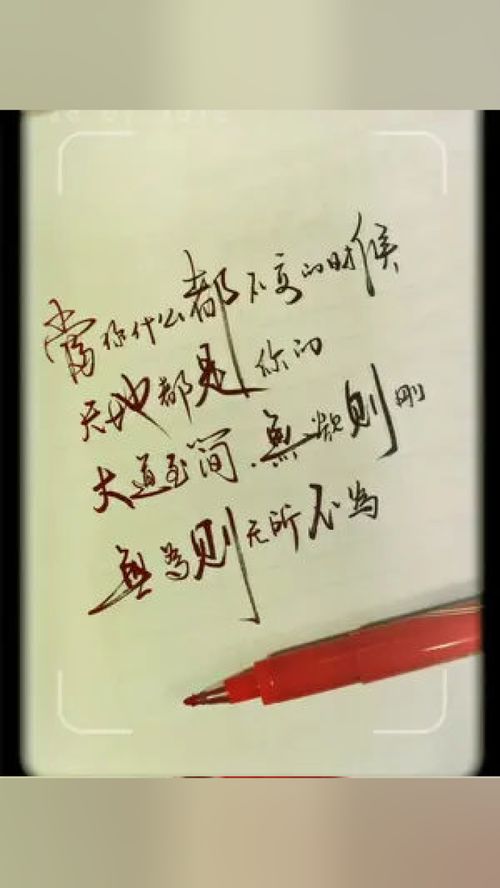 當你什么都不变的时候
天地都是你的
大道至简.無欲则刚
無為则无所不為